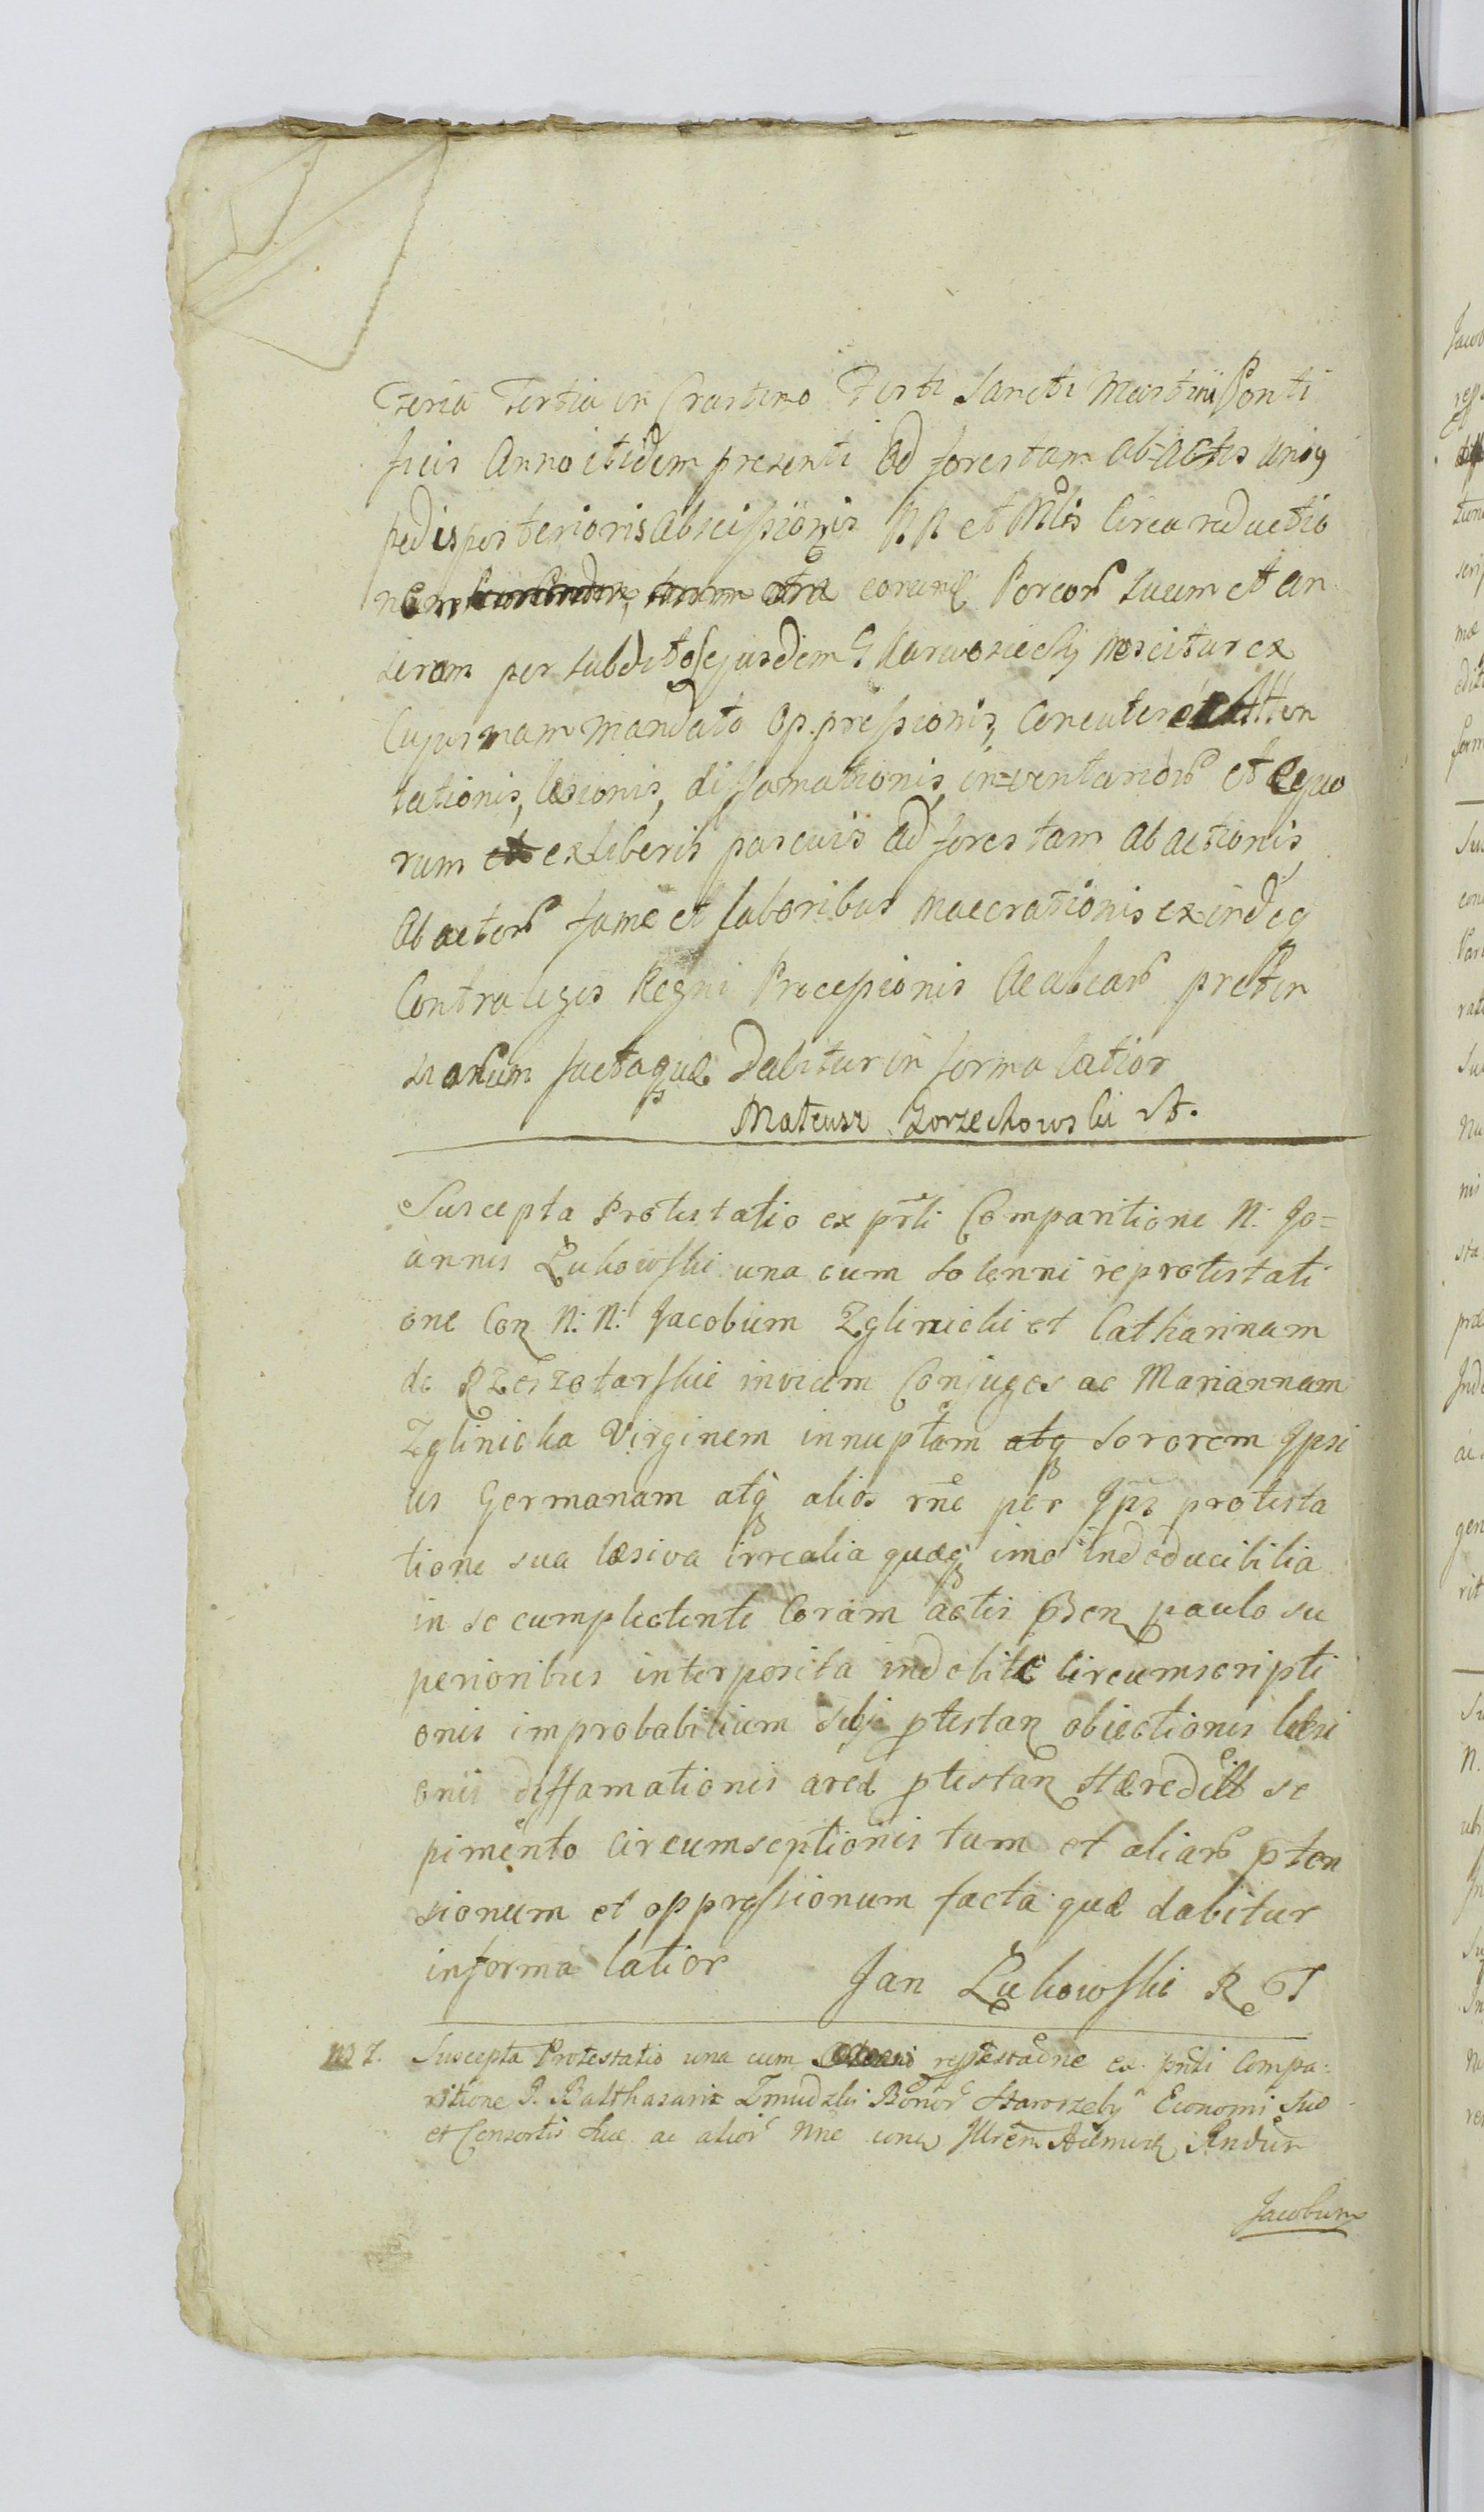 Feria Tertia in Crastino Festi Sancti Martini Ponti
ficis Anno itidem presenti Ad forestam ab-actis uniq
pedis posterioris abscissionis N. N. et Nblis Circa reductio
nem eorund Porcor suum et an
serum per subditos ejusdem G Karwosiecky noscitur ex
Cujusnam mandato Oppressionis, Concuter Atten
tationis, læsionis, diffamationis, in=ventarior et Equo
rum ex liberis pascuis Ad forestam abactionis
Abactor fame et laboribus macerationis exindeq
Contra leges Regni Precepsionis Ac aliar preten
sionum facta quæ Dabitur in forma latior
Mateusz Zorzechowski
Suscepta Protestatio ex prti Comparitione N. Jo=
annis Łukowski una cum Solenni reprotestati
one Con N: N: Jacobum Zglinicki et Catharinam
de Rzeszotarskie invicem Conjuges ac Mariannam
Zglinicka Virginem innuptam atq Sororem Ipsi
us Germanam atq alios rne per Ips protesta
tione sua læsiva irrealia quæq imo indeducibilia
in se cumplectente Coram actis præsen paulo su
perioribus interposita indebite Circumscripti
onis improbabilium sibj ptestan obiectionis læsi
onis diffamationis areæ ptestan Hæredit se
pimento Circumseptionis tum et aliar pten
sionum et oppressionum facta quæ dabitur
in forma latior Jan Łukowski R T
Suscepta Protestatio una cum repstaone ex pnti Compa:
ritione G. Balthasaris Zmudzki Bonor Starorzeby Economi suo
et Consortis Suæ ac alior Nne con
Jacobum